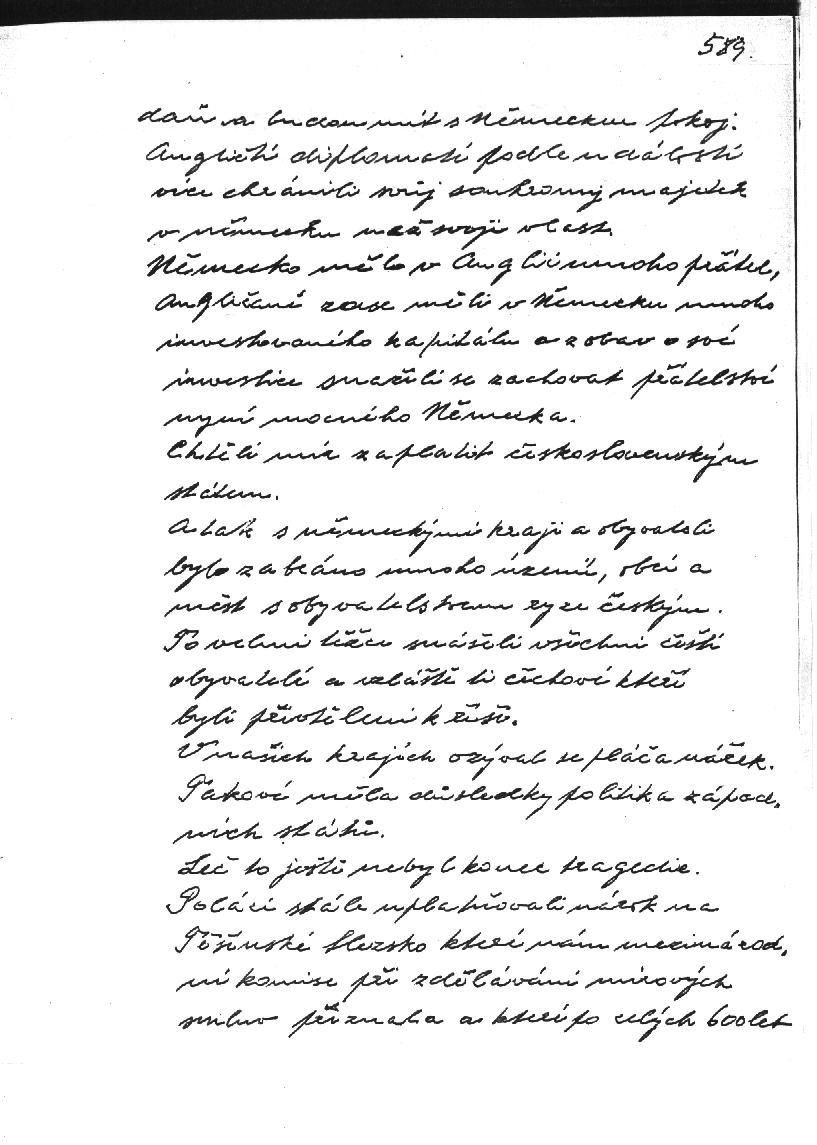 589.
daň a budou mít s Německem pokoj.
Angličtí diplomati podle událostí
více chránili svůj soukromý majetek
v německu než svoji vlast.
Německo mělo v Anglii mnoho přátel,
Angličané zase měli v Německu mnoho
investovaného kapitálu a z obav o své
investice snažili se zachovat přátelství
nyní mocného Německa.
Chtěli mír zaplatit československým
státem.
A tak s německými kraji a obyvateli
bylo zabráno mnoho území, obcí a
měst s obyvatelstvem ryze českým.
To velmi těžce snášeli všichni čeští
obyvatelé a vzláště ti čechové kteří
byli přivtěleni k říši.
V našich krajích ozýval se pláč a nářek.
Takové měla důsledky politika západ,
ních států.
Leč to ještě nebyl konec tragedie.
Poláci stále uplatňovali nárok na
Těšínské Slezsko které nám mezinárod,
ní komise při zdělávání mírových
smluv přiznala a které po celých 600 let